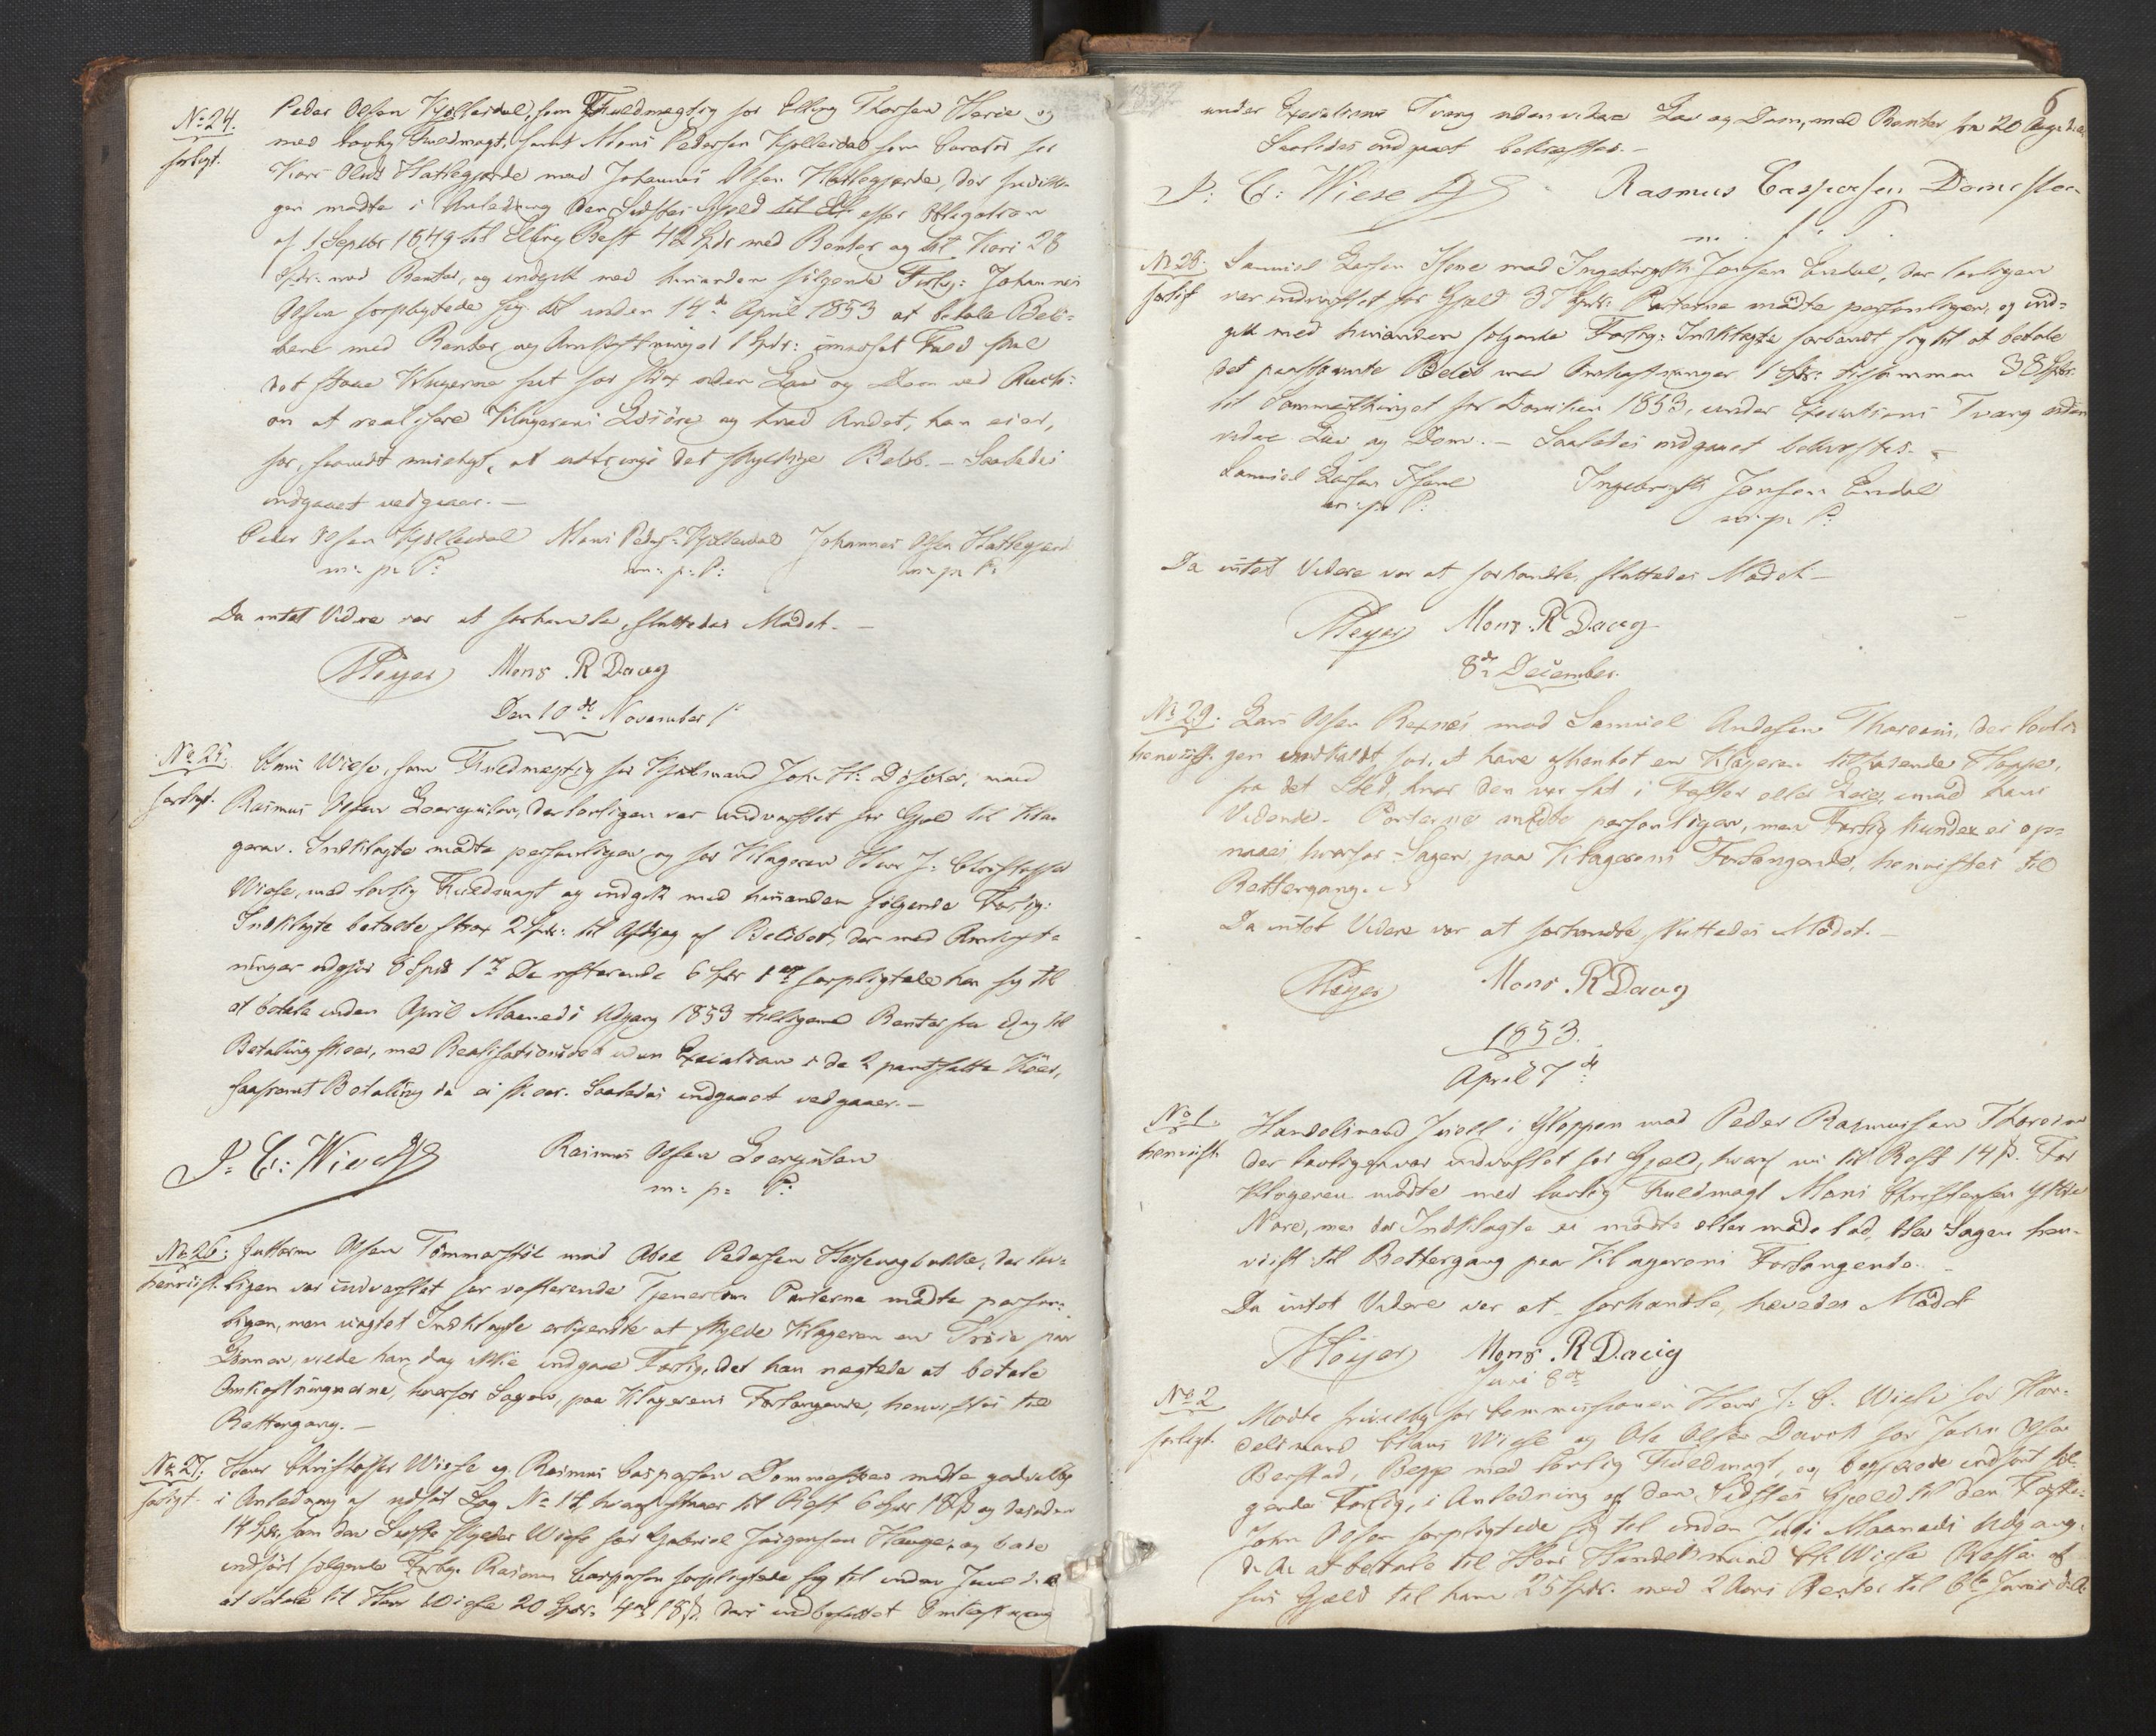 No 24.
forligt.
Peder Olsen Kjølleidal, som Fuldmægtig for Elling Thorsen Herie og
med lovlig Fuldmagt, samt Mons Pedersen Kjølleidal som for
Kari Olsd Hatlegjerde mod Johannes Olsen Hatlegjerde, der
gen mødte i Anledning den Sidstes Gjeld efter Obligation
af 1 Septbr 1849 til Elling Rest 42 Spdr med Renter og til Kari 28
Spdr. med Renter, og indgik med hinanden følgende Forlig: Johannes
Olsen forpligtede sig til inden 14de April 1853 at betale Belø-
bene med Renter og Omkostninger 1 Spdr: imodsat Fald skal
det staae Klagerne frit for strax uden Lov og Dom ved Auck-
on at realisere Klagerens Løsøre og hvad Andet, han eier,
for, saavidt muligt, at inddrive det skyldige Beløb. - Saaledes
indgaaet vedgaaes. -
Peder Olsen Kjølleidal Mons Peders: Kjølleidal Johannes Olsen Hatlegjerde
m: p: P: m: p: P: m: p: P:
Da intet Videre var at forhandle, sluttedes Mødet. -
Meyer Mons R Daug
Den 10de November
No 25.
forligt.
Hans Wiese, som Fuldmægtig for Kjøbmand Joh. H: Döscher, mod
Rasmus Olsen, der lovligen var indvarslet for Gjeld til Kla-
geren. Indklagte mødte personligen og for Klageren Herr J: Christopher
Wiese, med lovlig Fuldmagt og indgik med hinanden følgende Forlig:
Indklagte betalte strax 2 Spdr: til Afdrag af Beløbet, der med Omkost-
ninger udgjør 8 Spdr 1 De resterende 6 Spdr 1 forpligtede han sig til
at betale inden April Maaneds Udgang 1853 tilligemed Renter fra idag til
Betaling skeer, med Realisations uden Execution i de 2 pantsatte Köer,
saafremt Betaling da ei skeer. Saaledes indgaaet vedgaaes. -
J: C: Wiese Rasmus Olsen
m: p: P:
No 26.
henviist.
Guttorm Olsen Tömmerstöl mod Abel Pedersen, der lov-
ligen var indvarslet for resterende Tjenerløn. Parterne mødte person-
ligen, men uagtet Indklagte erkjendte at skylde Klageren en Trøie paa
Lønnen, vilde han dog ikke indgaae Forlig, det han nægtede at betale
Omkostningerne, hvorfor Sagen, paa Klagerens Forlangende, henvistes til
Rettergang. -
No 27.
forligt.
Herr Christopher Wiese og Rasmus Caspersen Dommesteen mødte godvillig
i Anledning af udsat Sag No 14, hvorpaa staaer til Rest 6 Spdr og desuden
14 Spdr, som den Sidste skylder Wiese for Gabriel Jørgensen Hauge, og bade
indført følgende Forlig. Rasmus Caspersen forpligtede sig til inden Juni d. A
at betale til Herr Wiese 20 Spdr. 4 18 ß deri indbefattet Omkostning
6
under Executions Tvang uden videre Lov og Dom, med Renter fra 20 Aug. d. A.
Saaledes indgaaet bekræftes. -
J: C: Wiese Rasmus Caspersen Domesteen
m. p. P.
No 28.
forligt
Samuel Larsen Hjeme mod Ingebrigt Jonsen Endal, der lovligen
var indvarslet for Gjeld 37 Spdr: Parterne mødte personligen, og ind-
gik med hinanden følgende Forlig: Indklagte forbandt sig til at betale
det paastævnte Beløb med Omkostninger 1 Spdr: tilsammen 38 Spdr.
til Sommerthinget for Davigen 1853, under Executions Tvang uden
videre Lov og Dom. - Saaledes indgaaet bekræftes. -
Samuel Larsen Hjeme Ingebrigt Jonsen Endal
m: p: P: m: p: P:
Da intet Videre var at forhandle, sluttedes Mødet -
Meyer Mons. R Daug
8de December.
No 29.
henviist.
Lars Olsen Rexnes mod Samuel Andersen Thoreim, der lovli-
gen indkaldt for, at have afhentet en Klageren tilhørende Hoppe,
fra det Sted, hvor den var sat i Foster eller Leie, imod hans
Vidende. Parterne mødte personligen, men Forlig kunde ei op-
naaes, hvorfor Sagen, paa Klagerens Forlangende, henvistes til
Rettergang. -
Da intet Videre var at forhandle, sluttedes Mødet. -
Meyer Mons. R Daug
1853.
April 7de
No 1.
henviist
Handelsmand Juell i Gloppen mod Peder Rasmussen Thoreim
der lovligen var indvarslet for Gjeld, hvoraf nu til Rest 14 ß. For
Klageren mødte med lovlig Fuldmagt Mons Christensen Ytre
Nore, men da Indklagte ei mødte eller møde lod, blev Sagen hen-
viist til Rettergang paa Klagerens Forlangende. -
Da intet Videre var at forhandle, hævedes Mødet
Meyer Mons. R Daug
Juni 8de
No 2
forligt.
Mødte frivillig for Commissionen Herr J. C. Wiese for Han-
delsmand Claus Wiese og Ole Olsen Davik for John Olsen
Berstad, Begge med lovlig Fuldmagt, og begjerede indført føl-
gende Forlig, i Anledning af den Sidstes Gjeld til den Første.
John Olsen forpligtede sig til inden Juli Maaneds Udgang
d. A. at betale til Herr Handelsmand Cl: Wiese Resten af
sin Gjeld til ham 25 Spdr. med 2 Aars Renter til 6te Junii d. A.